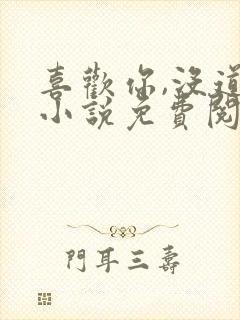 喜歡你,沒道
小說免費閱
門耳三壽